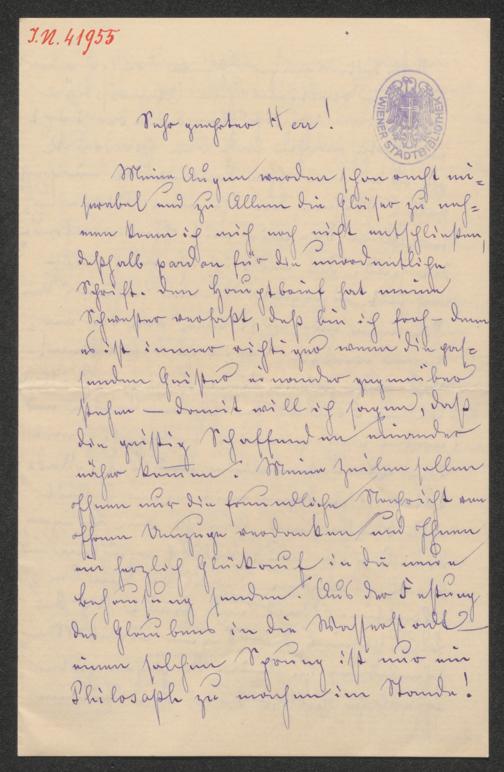 J.N. 41955
WIENER STADTBIBLIOTHEK
Sehr geehrter Herr!
Meine Augen werden schon recht mi=
serabel und zu Allem die Gläser zu neh=
men kann ich mich noch nicht entschließen,
deßhalb pardon für die unordentliche
Schrift. Den Hauptbrief hat meine
Schwester verfaßt, deß bin ich froh – denn
es ist immer richtiger wenn die pas=
senden Geister einander gegenüber
stehen — damit will ich sagen, daß
die geistig Schaffenden einander
näher kommen. Meine Zeilen sollen
Ihnen nur die freundliche Nachricht von
Ihrem Umzuge verdanken und Ihnen
ein herzlich Glückauf in die neue
Behausung senden. Aus der Festung
des Glaubens in die Wasserstadt –
einen solchen Sprung ist nur ein
Philosoph zu machen im Stande!